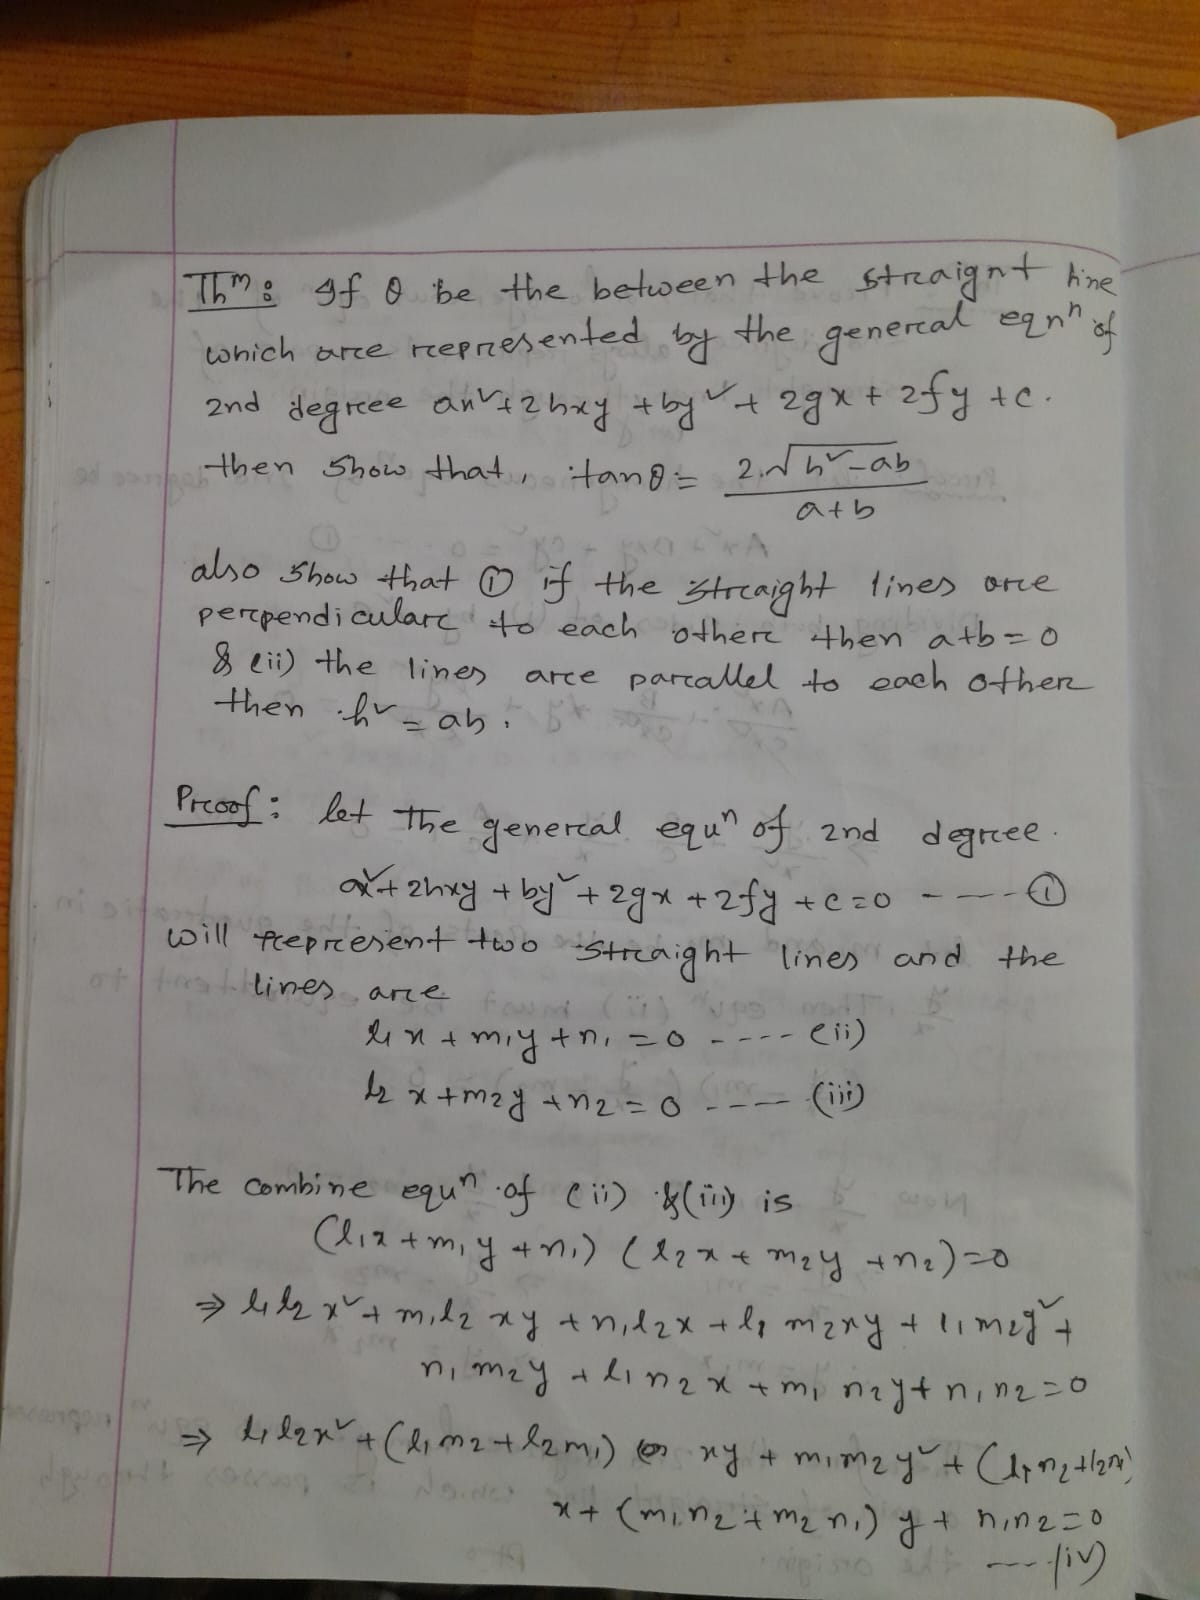 Thm: If θ be the between the straignt line
which are represented by the general eqnⁿ of
2nd degree ax²+2hxy +by²+ 2gx + 2fy +c.
then show that, tanθ = 2√h²-ab / a+b
also show that ① if the straight lines are
perpendiculare to each other then a+b=0
& (ii) the lines are parallel to each other
then h² = ab.
Proof: let the general equⁿ of 2nd degree.
ax²+2hxy +by²+2gx +2fy +c=0 ----①
will represent two straight lines and the
lines are
l₁x + m₁y +n₁ =0 ---- (ii)
l₂x +m₂y +n₂=0 ---- (iii)
The combine equⁿ of (ii) &(iii) is
(l₁x +m₁y +n₁) (l₂x + m₂y +n₂)=0
⇒ l₁l₂x²+ m₁l₂ xy +n₁l₂x +l₁ m₂xy + l₁m₂y²+
n₁m₂y + l₁n₂x +m₁ n₂y+ n₁n₂=0
⇒ l₁l₂x²+(l₁m₂+l₂m₁) xy + m₁m₂y²+ (l₁n₂+l₂n₁)
x+ (m₁n₂+m₂n₁) y + n₁n₂=0
---- (iv)